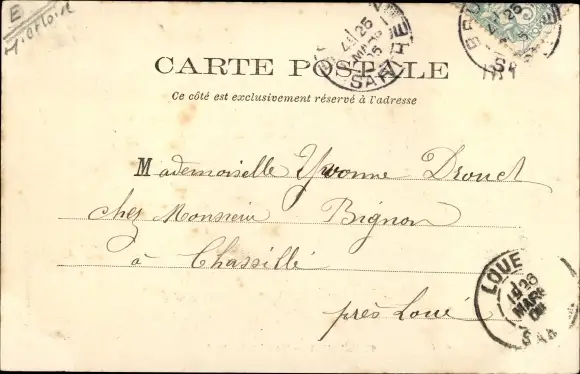 E
CARTE POSTALE
Ce côté est exclusivement réservé à l'adresse
Mademoiselle Yvonne Drouet
chez Monsieur Bignon
à Chassillé
près Loué
25
MARS
05
SARTHE
25
LOUE
26
MARS
SAR